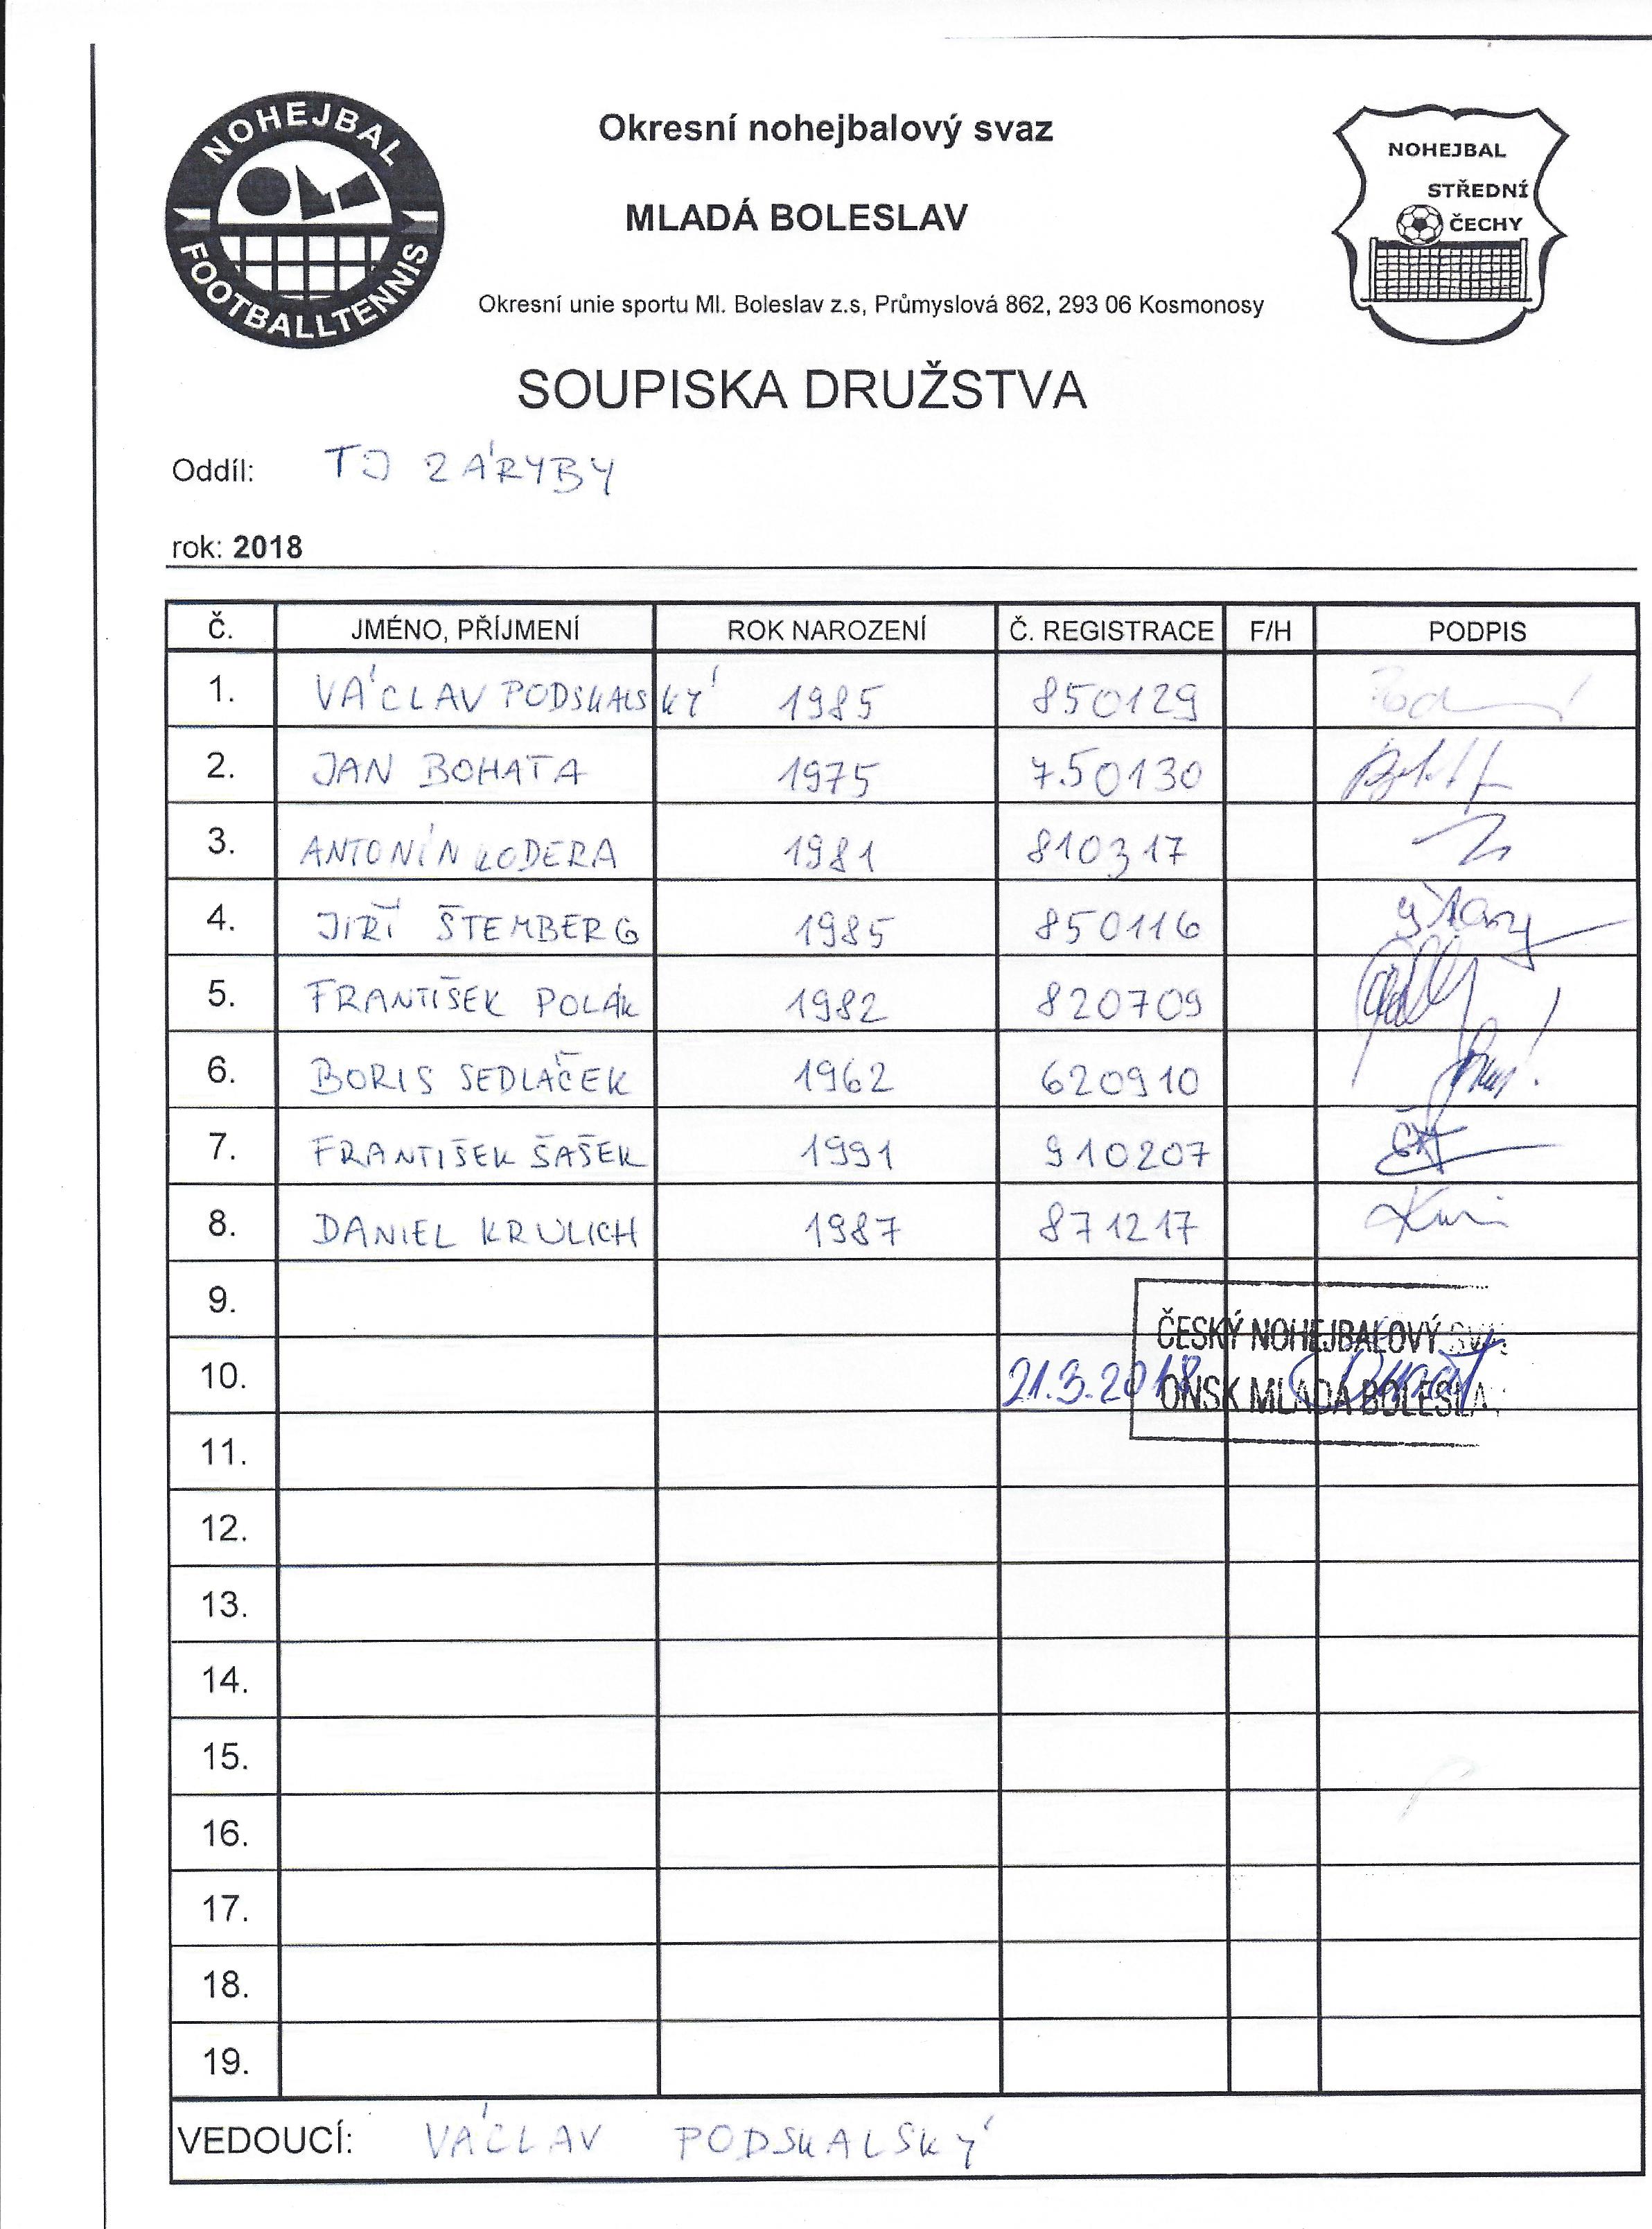 NOHEJBAL
FOOTBALLTENNIS
Okresní nohejbalový svaz
MLADÁ BOLESLAV
Okresní unie sportu Ml. Boleslav z.s, Průmyslová 862, 293 06 Kosmonosy
NOHEJBAL
STŘEDNÍ
ČECHY
SOUPISKA DRUŽSTVA
Oddíl: TJ ZÁRYBY
rok: 2018
Č. JMÉNO, PŘÍJMENÍ ROK NAROZENÍ Č. REGISTRACE F/H PODPIS
1. VÁCLAV PODSKALSKÝ 1985 850129
2. JAN BOHATA 1975 750130
3. ANTONÍN KODERA 1981 810317
4. JIŘÍ ŠTEMBERG 1985 850116
5. FRANTIŠEK POLÁK 1982 820709
6. BORIS SEDLÁČEK 1962 620910
7. FRANTIŠEK ŠAŠEK 1991 910207
8. DANIEL KRULICH 1987 871217
9.
ČESKÝ NOHEJBALOVÝ
10. 21.3.2018
ONSK MLADÁ BOLESLA
11.
12.
13.
14.
15.
16.
17.
18.
19.
VEDOUCÍ: VÁCLAV PODSKALSKÝ